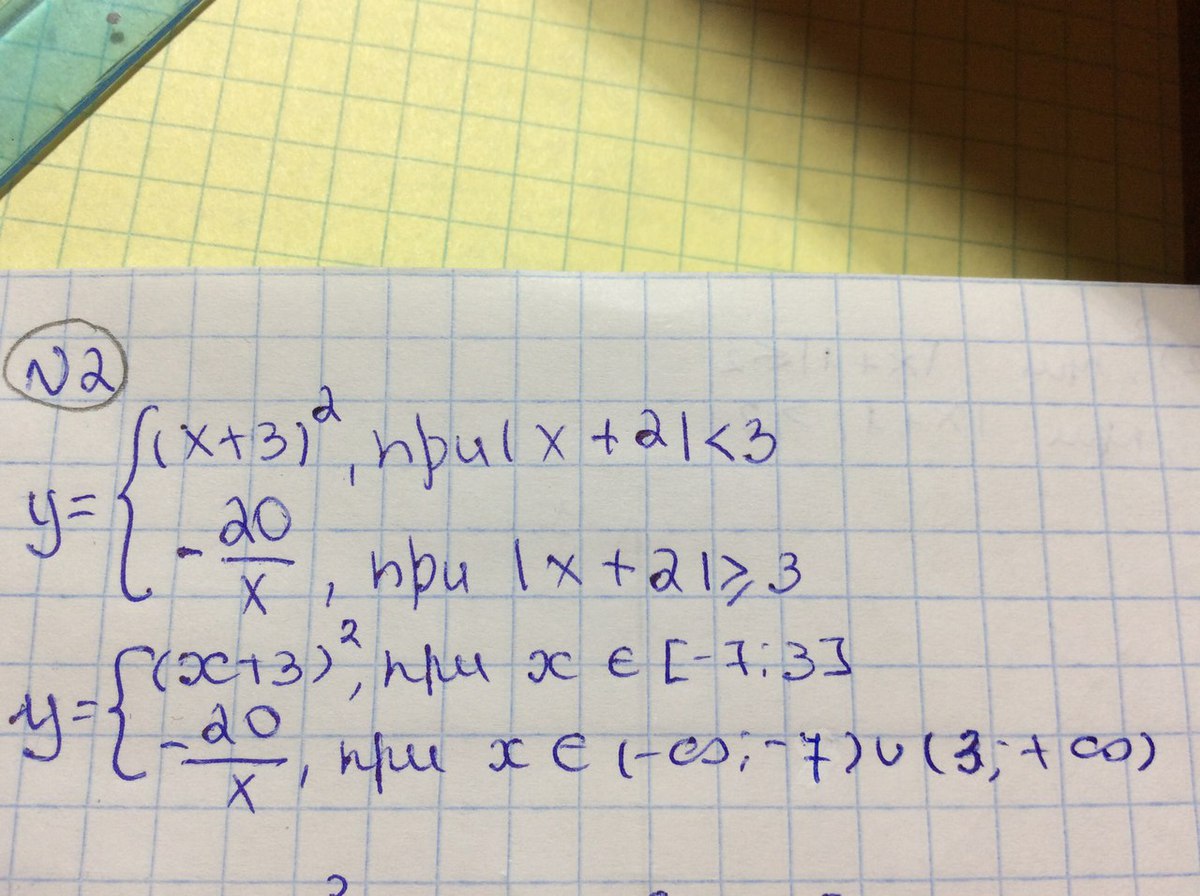 N2
y = { (x+3)², при |x+2|<3
-20/x, при |x+2|≥3
y = { (x+3)², при x ∈ [-7; 3]
-20/x, при x ∈ (-∞; -7) ∪ (3; +∞)